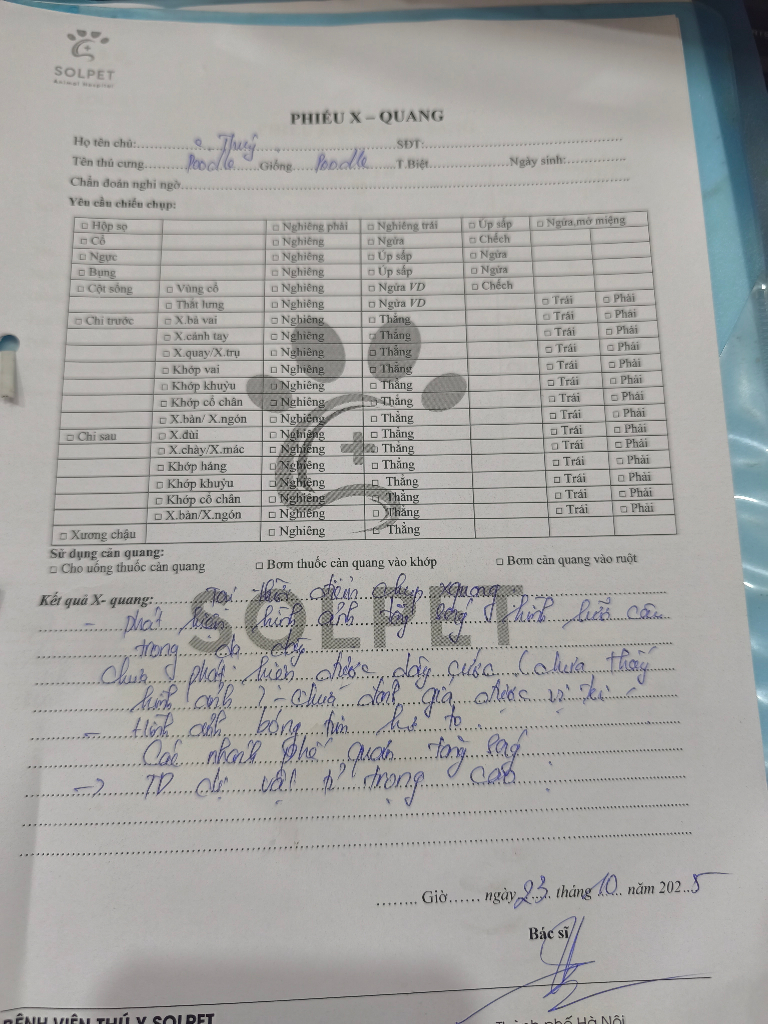 SOLPET
Animal Hospital
PHIẾU X – QUANG
Họ tên chủ: c. Thuỷ SĐT:
Tên thú cưng Poodle Giống Poodle T.Biệt Ngày sinh:
Chẩn đoán nghi ngờ
Yêu cầu chiếu chụp:
□ Hộp sọ □ Nghiêng phải □ Nghiêng trái □ Úp sấp □ Ngửa,mở miệng
□ Cổ □ Nghiêng □ Ngửa □ Chếch
□ Ngực □ Nghiêng □ Úp sấp □ Ngửa
□ Bụng □ Nghiêng □ Úp sấp □ Ngửa
□ Cột sống □ Vùng cổ □ Nghiêng □ Ngửa VD □ Chếch
□ Thắt lưng □ Nghiêng □ Ngửa VD □ Trái □ Phải
□ Chi trước □ X.bả vai □ Nghiêng □ Thẳng □ Trái □ Phải
□ X.cánh tay □ Nghiêng □ Thẳng □ Trái □ Phải
□ X.quay/X.trụ □ Nghiêng □ Thẳng □ Trái □ Phải
□ Khớp vai □ Nghiêng □ Thẳng □ Trái □ Phải
□ Khớp khuỷu □ Nghiêng □ Thẳng □ Trái □ Phải
□ Khớp cổ chân □ Nghiêng □ Thẳng □ Trái □ Phải
□ X.bàn/ X.ngón □ Nghiêng □ Thẳng □ Trái □ Phải
□ Chi sau □ X.đùi □ Nghiêng □ Thẳng □ Trái □ Phải
□ X.chày/X.mác □ Nghiêng □ Thẳng □ Trái □ Phải
□ Khớp háng □ Nghiêng □ Thẳng □ Trái □ Phải
□ Khớp khuỷu □ Nghiêng □ Thẳng □ Trái □ Phải
□ Khớp cổ chân □ Nghiêng □ Thẳng □ Trái □ Phải
□ X.bàn/X.ngón □ Nghiêng □ Thẳng □ Trái □ Phải
□ Xương chậu □ Nghiêng □ Thẳng
Sử dụng cản quang:
□ Cho uống thuốc cản quang □ Bơm thuốc cản quang vào khớp □ Bơm cản quang vào ruột
SOLPET
Kết quả X- quang: Tại thời điểm chụp xquang
- phát hiện hình ảnh tăng sáng hình lưỡi câu
trong dạ dày
Chưa phát hiện được dây cước (chưa thấy
hình ảnh) - chưa đánh giá được vị trí
- Hình ảnh bóng tim hơi to
Các nhánh phế quản tăng sáng
-> TD dị vật trong
Giờ ngày 23 tháng 10 năm 2025
Bác sĩ
BỆNH VIỆN THÚ Y SOLPET
Thành phố Hà Nội